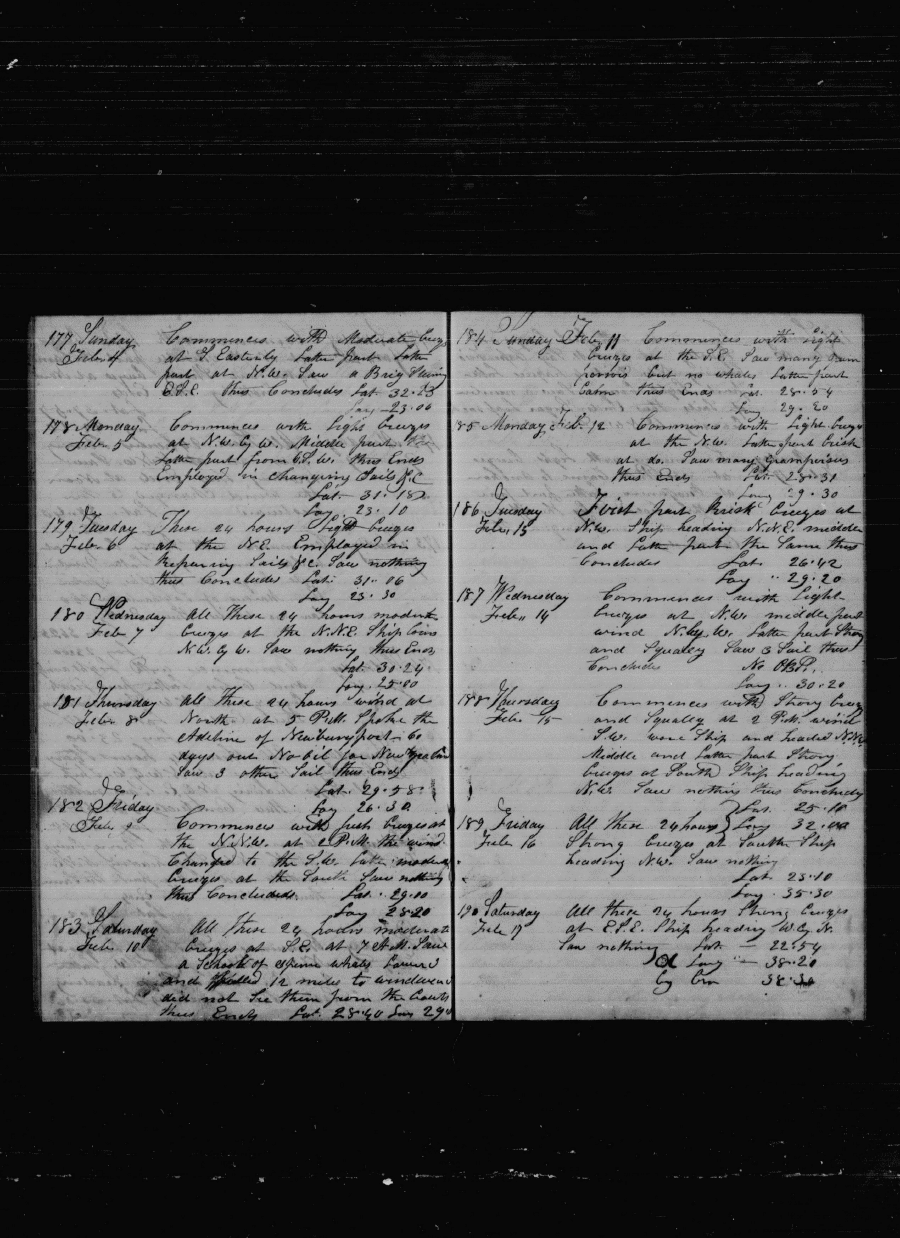 177 Sunday Commences with Moderate breezes
Feb. 4 at S. Easterly Latter part Latter
part at N.W. Saw a Brig Steering
E.S.E. thus Concludes Lat. 32.23
Long 23.00
178 Monday Commences with light breezes
Feb. 5 at N.W. by W. Middle part
Latter part from S.W. thus Ends
Employed in changeing Sails &c
Lat. 31.18
Long. 23.10
179 Tuesday These 24 hours light breezes
Feb. 6 at the N.E. Employed in
Repairing Sails &c. Saw nothing
thus Concludes Lat. 31.06
Long 23.30
180 Wednesday All these 24 hours moderate
Feb. 7 breezes at the N.N.E. Ship
N.W. by W. Saw nothing thus Ends
Lat. 30.24
Long. 25.00
181 Thursday All these 24 hours wind at
Feb. 8 North at 5 P.M. Spoke the
Adeline of Newburyport 60
days out Mobile for New
Saw 3 other Sail thus Ends
Lat. 29.58
Long 26.30
182 Friday
Feb. 9 Commences with fresh breezes at
the N.N.W. at 2 P.M. the wind
Changed to the S.W. Latter moderate
breezes at the South Saw nothing
thus Concludes. Lat. 29.00
Long 28.20
183 Saturday All these 24 hours moderate
Feb. 10 breezes at S.E. at 7 A.M. Saw
a School of Sperm whales Lowerd
and Pulled 12 miles to windward
did not See them from the boats
thus Ends Lat. 28.40 Lon 29
184 Sunday Feb. 11 Commences with light
breezes at the S.E. Saw many
but no whales Latter part
Calm thus Ends Lat. 28.54
Long 29.20
185 Monday Feb. 12 Commences with Light breezes
at the N.W. Latter part brisk
at do. Saw many grampuses
thus Ends Lat. 28.31
Long 29.30
186 Tuesday First part Brisk breezes at
Feb. 13 N.W. Ship heading N.N.E. middle
and Latter part the Same thus
Concludes Lat. 26.42
Long " 29.20
187 Wednesday Commences with Light
Feb. 14 breezes at N.W. middle part
wind N. by W. Latter part Strong
and Squally Saw 3 Sail thus
Concludes No OBS.
Long .. 30.20
188 Thursday Commences with Strong breezes
Feb. 15 and Squally at 2 P.M. wind
S.W. wore Ship and headed N.W.
Middle and Latter part Strong
breezes at South Ship heading
N.W. Saw nothing thus Concludes
Lat. 25.10
189 Friday All these 24 hours } Long 32.00
Feb. 16 Strong breezes at South Ship
heading N.W. Saw nothing
Lat. 23.10
Long. 35.30
190 Saturday All these 24 hours Strong breezes
Feb. 17 at E.S.E. Ship heading W. by N.
Saw nothing Lat. — 22.54
Long " — 38.20
by Cro 38.30